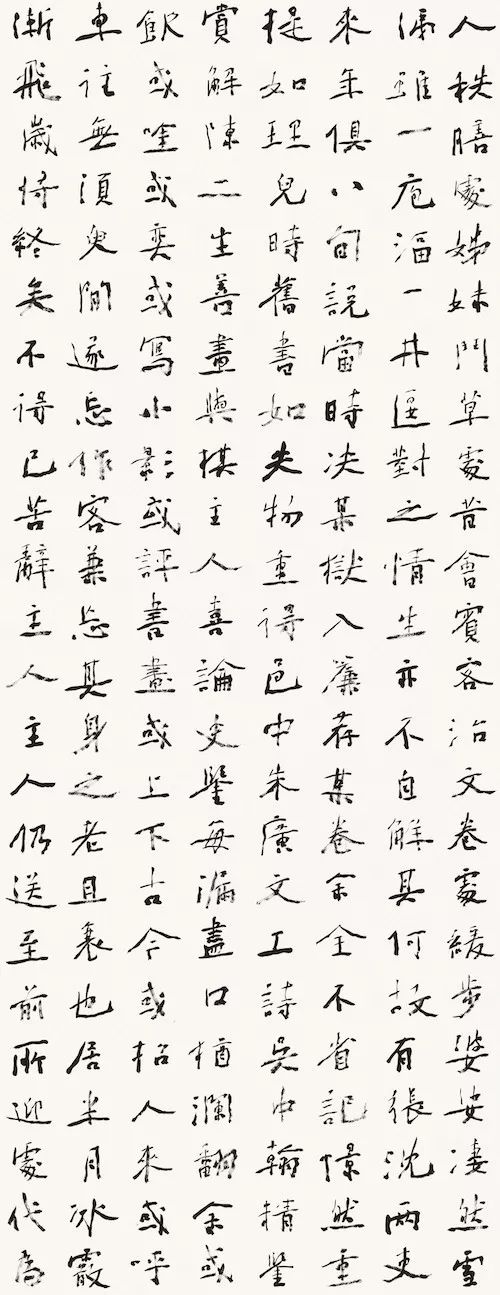 人秩膳處娣妹鬥草處昔會賓客治文卷處緩步婆娑凄然雪
涕雖一庖湢一井匽對之情生亦不自解其何故有張沈兩吏
來年俱八旬說當時決某獄入簾荐某卷余全不省記憬然重
提如理兒時舊書如失物重得邑中朱廣文工詩吳中翰精鑒
賞解陳二生善畫與棋主人喜論史鑒每漏盡口猶瀾翻余或
飲或唫或奕或寫小影或評書畫或上下古今或招人來或呼
車往無須臾間遂忘作客兼忘其身之老且衰也居半月冰霰
漸飛歲將終矣不得已苦辭主人主人仍送至前所迎處代為